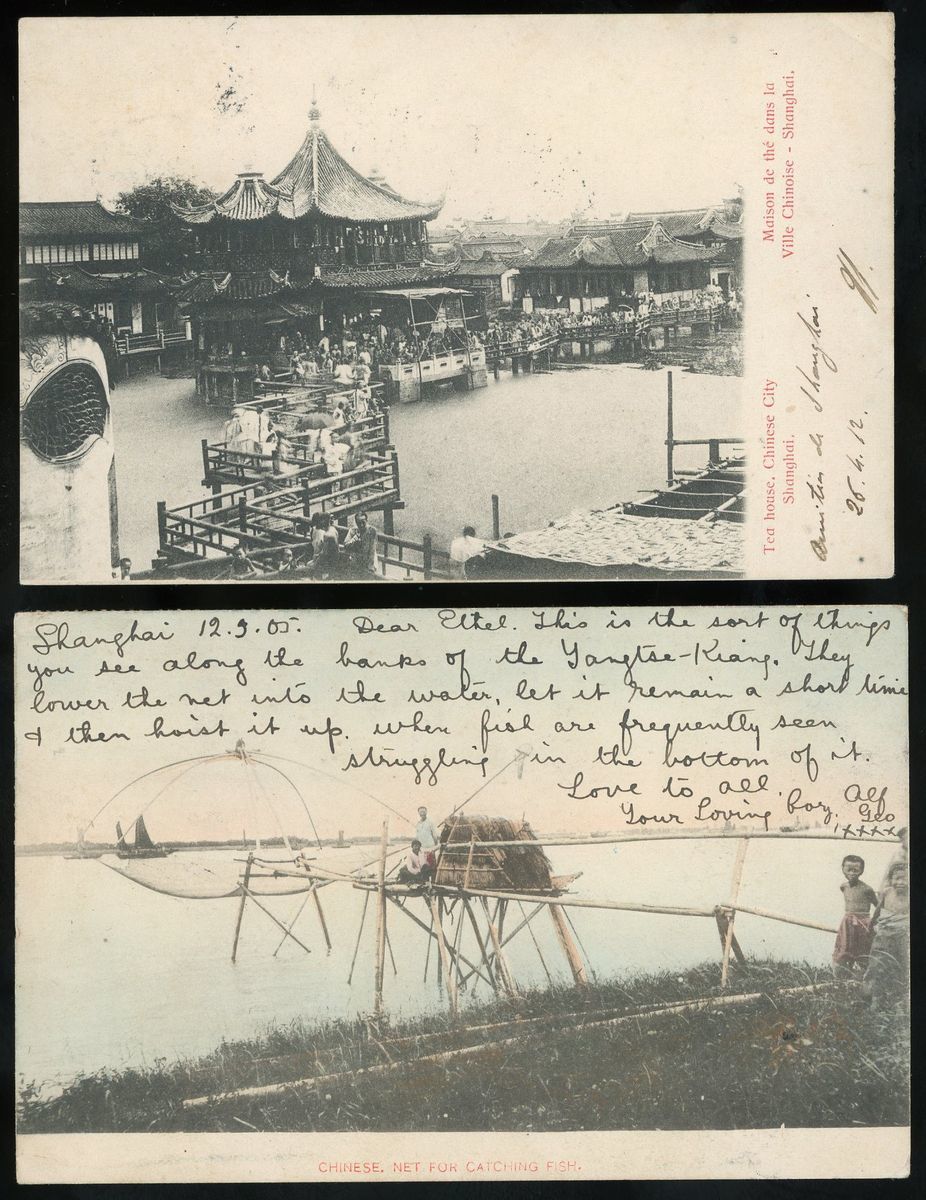 Maison de thé dans la
Ville Chinoise - Shanghai.
Tea house, Chinese City
Shanghai.
de Shanghai
26.4.12.
Shanghai 12.3.05. Dear Ethel. This is the sort of things
you see along the banks of the Yangtse-Kiang. They
lower the net into the water, let it remain a short time
& then hoist it up. when fish are frequently seen
struggling in the bottom of it.
Love to all.
Your loving boy. Alf
Geo
xxxx
CHINESE. NET FOR CATCHING FISH.